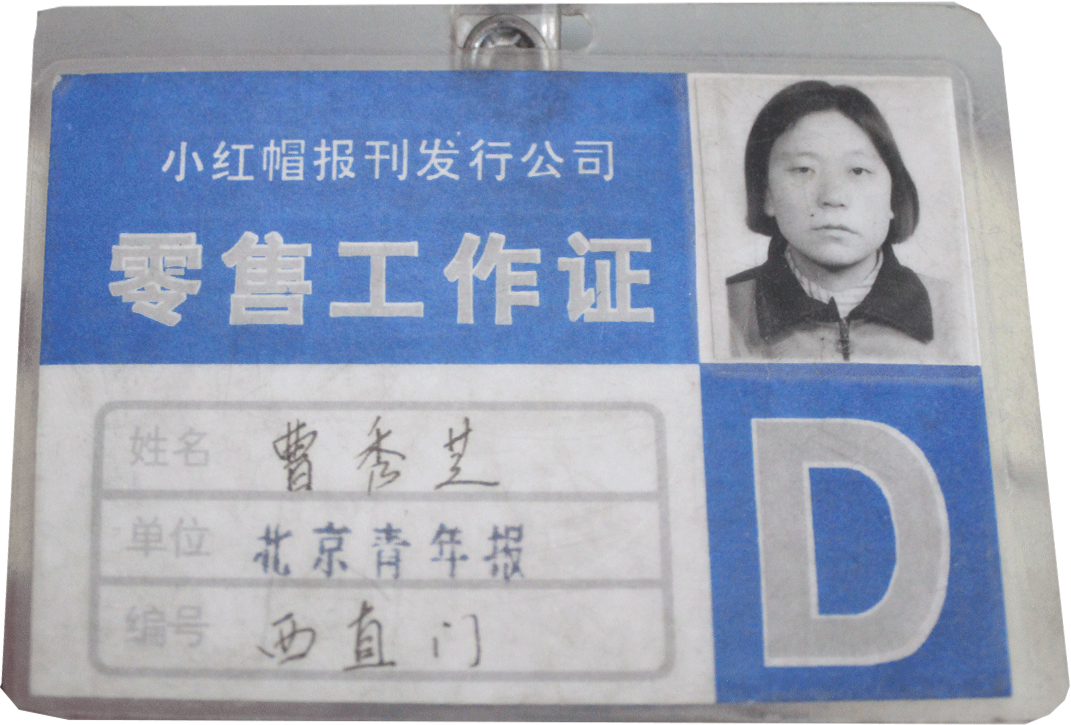 小红帽报刊发行公司
零售工作证
姓名 曹秀芝
单位 北京青年报
编号 西直门
D